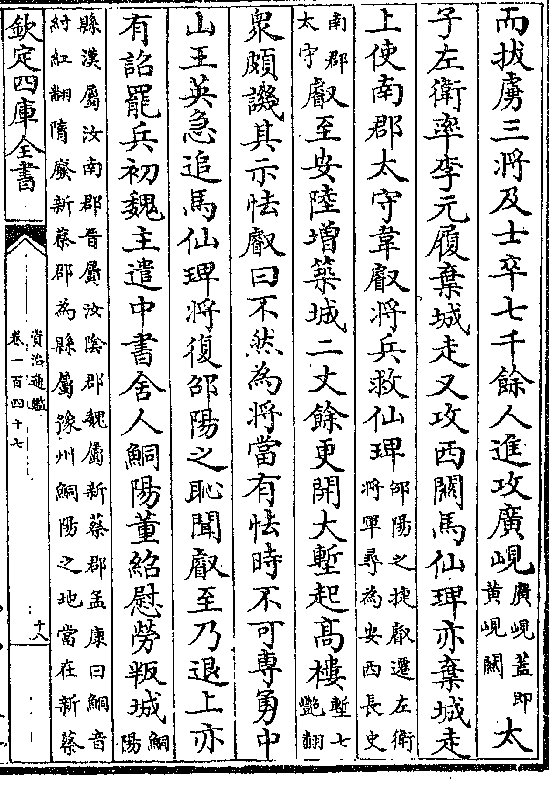 而拔虜三將及士卒七千餘人進攻廣峴廣峴蓋即黄峴關太
子左衛率李元履棄城走又攻西關馬仙琕亦棄城走
上使南郡太守韋叡將兵救仙琕邵陽之捷叡遷左衛將軍尋為安西長史
南郡太守叡至安陸増築城二丈餘更開大塹起髙樓塹七艷翻
衆頗譏其示怯叡曰不然為將當有怯時不可專勇中
山王英急追馬仙琕將復邵陽之恥聞叡至乃退上亦
有詔罷兵初魏主遣中書舍人鮦陽董紹慰勞叛城鮦陽
縣漢屬汝南郡晉屬汝隂郡魏屬新蔡郡孟康曰鮦音
紂紅翻隋廢新蔡郡為縣屬豫州鮦陽之地當在新蔡
欽定四庫全書
資治通鑑
卷一百四十七
十八